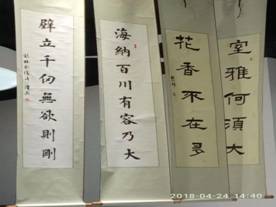 室雅何須大
花香不在多
海納百川有容乃大
壁立千仞無欲則剛
2018-04-24 14:40